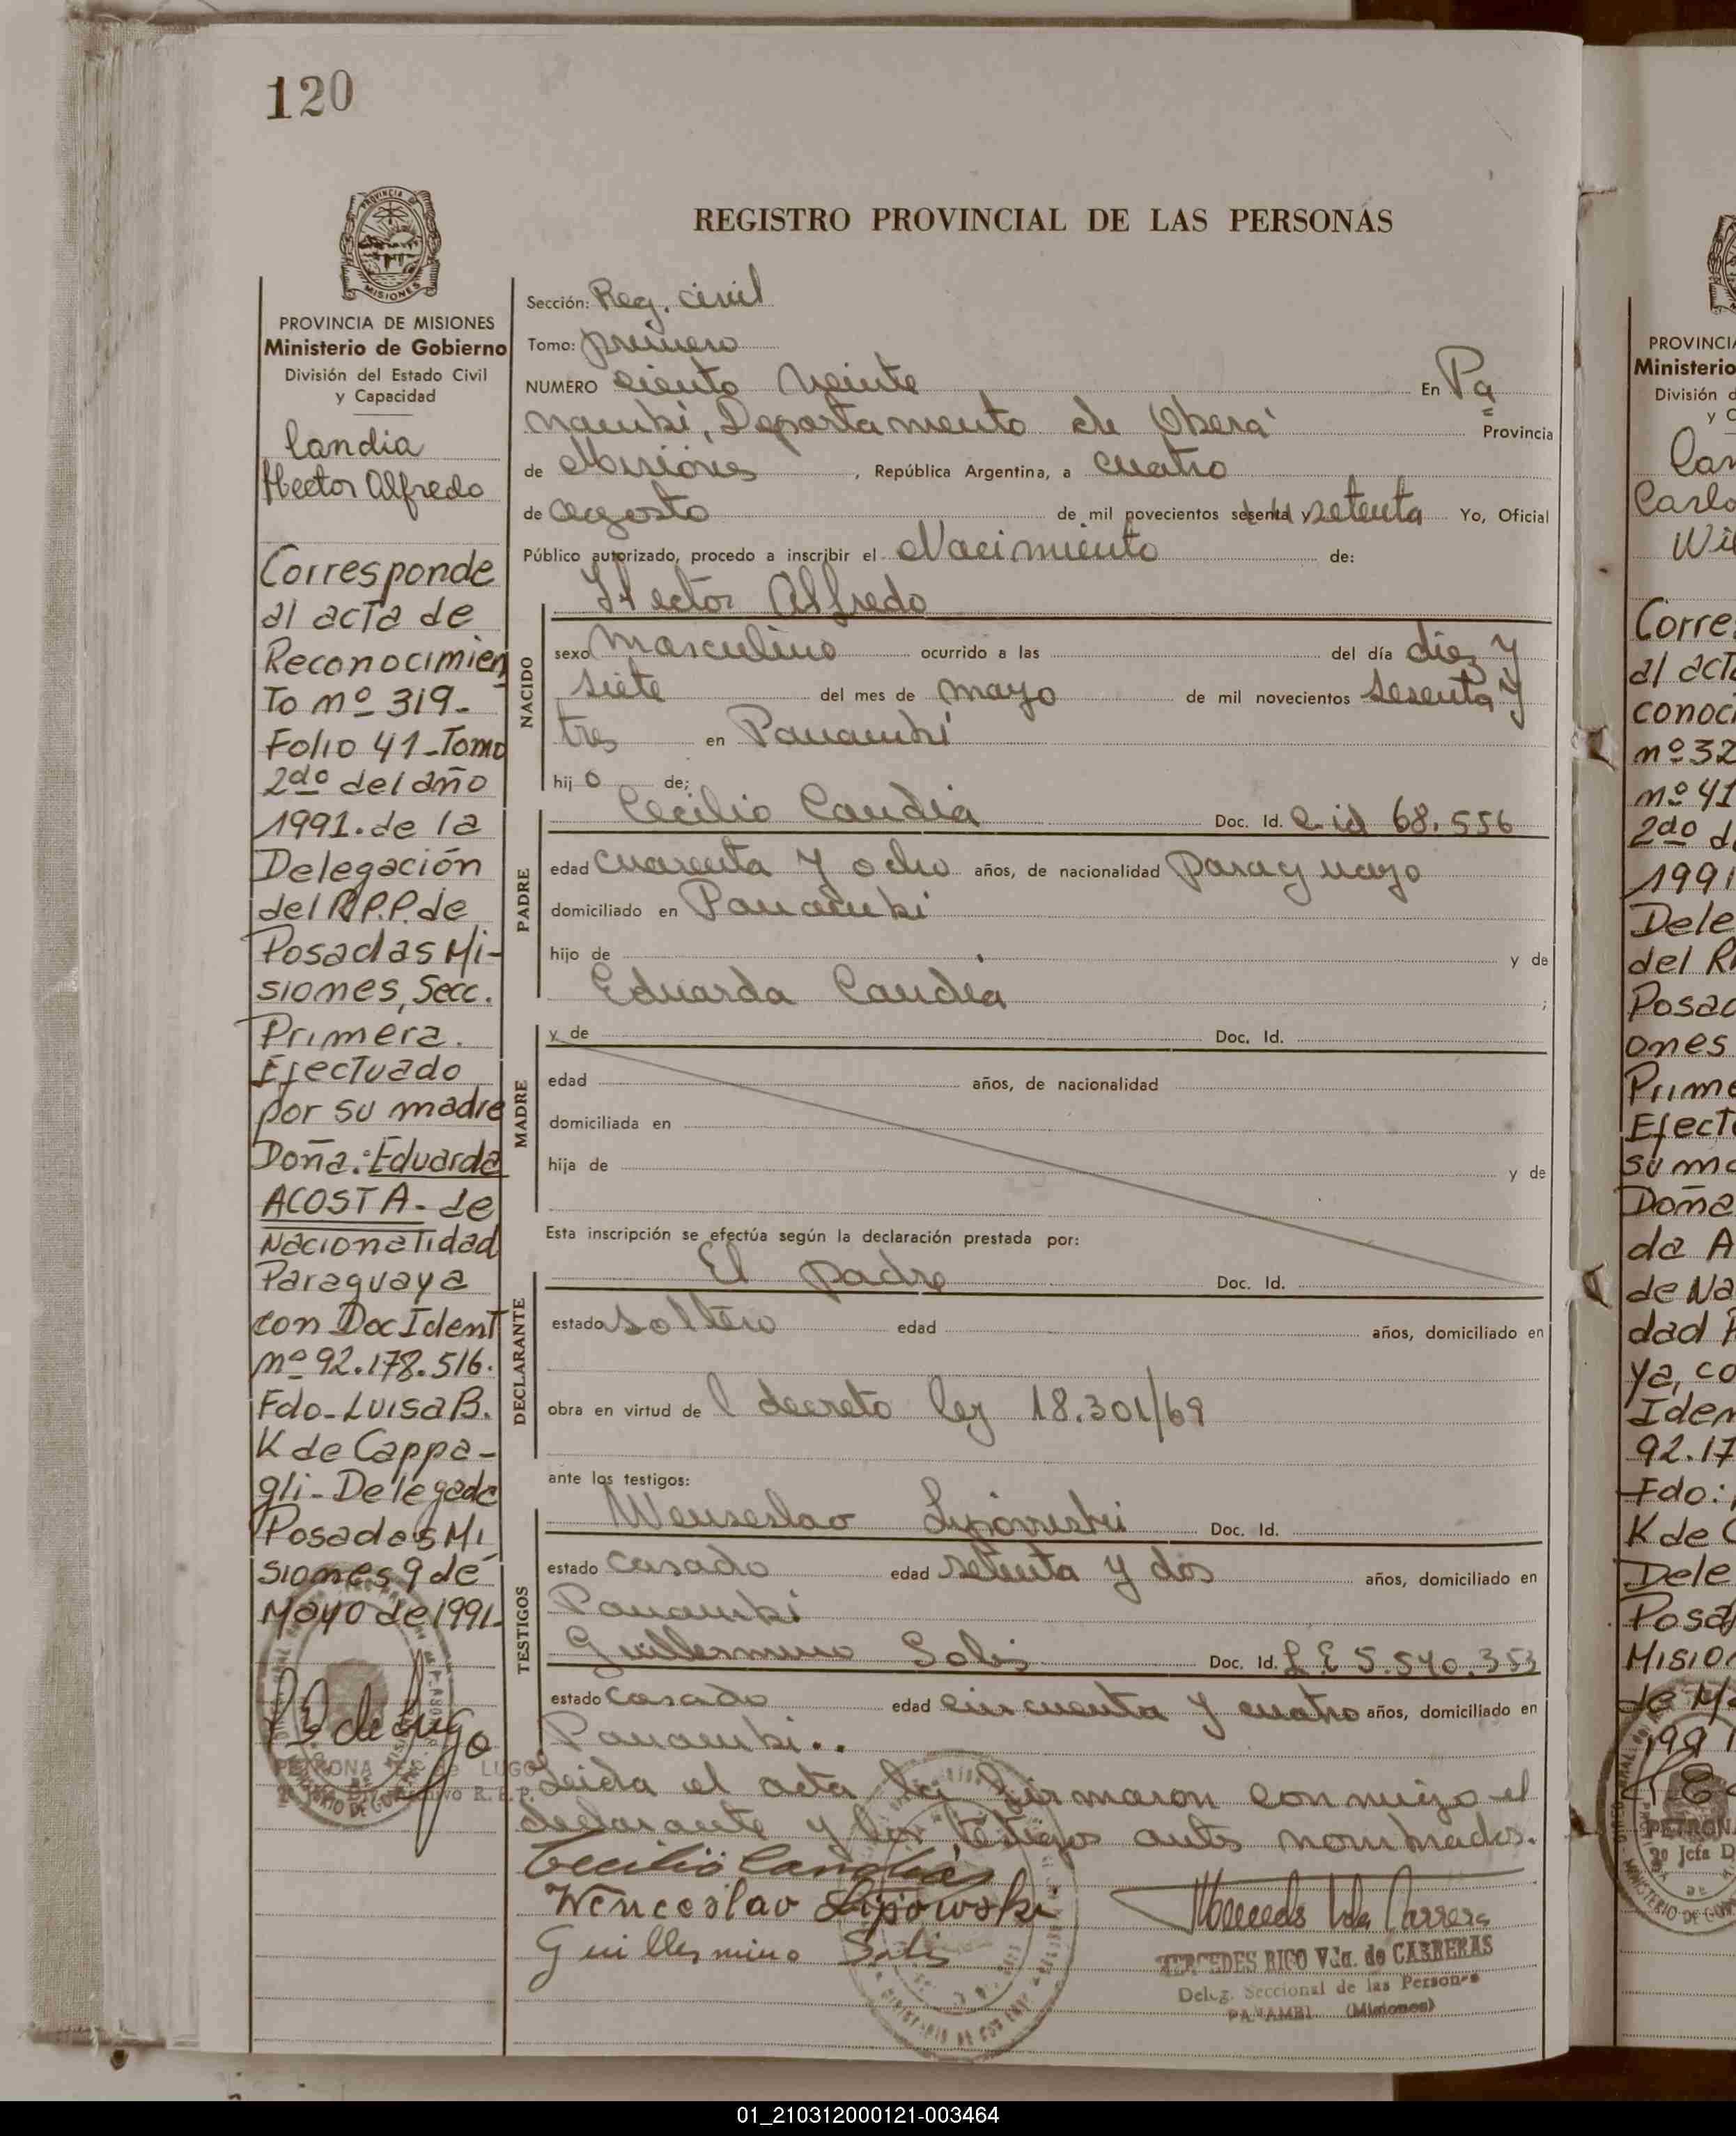 120
REGISTRO PROVINCIAL DE LAS PERSONAS
MISIONES
PROVINCIA DE MISIONES
Ministerio de Gobierno
División del Estado Civil
y Capacidad
Candia
Hector Alfredo
Corresponde
al acta de
Reconocimien
To nº 319-
Folio 41-Tomo
2do del año
1991. de la
Delegación
del R.P.P. de
Posadas Mi-
siones, Secc.
Primera.
Efectuado
por su madre
Doña: Eduarda
ACOSTA- de
Nacionalidad
Paraguaya
con Doc Ident
nº 92.178.516.
Fdo- Luisa B.
K de Cappa-
gli- Delegada
Posadas Mi
siones 9 de
Mayo de 1991.
PETRONA de LUGO
Sección: Reg. civil
Tomo: primero
NUMERO ciento veinte En Pa
nambi, Departamento de Oberá Provincia
de Misiones, República Argentina, a cuatro
de agosto de mil novecientos sesenta y setenta Yo, Oficial
Público autorizado, procedo a inscribir el Nacimiento de:
Hector Alfredo
NACIDO
sexo masculino ocurrido a las del día diez y
siete del mes de mayo de mil novecientos sesenta y
tres en Panambí
hijo de:
PADRE
Cecilio Candia Doc. Id. C. id 68.556
edad cuarenta y ocho años, de nacionalidad paraguayo
domiciliado en Panambi
hijo de y de
Eduarda Candia ;
MADRE
y de Doc. Id.
edad años, de nacionalidad
domiciliada en
hija de y de
Esta inscripción se efectúa según la declaración prestada por:
DECLARANTE
El padre Doc. Id.
estado soltero edad años, domiciliado en
obra en virtud de l decreto ley 18.301/69
ante los testigos:
TESTIGOS
Wenseslao Lipowski Doc. Id.
estado casado edad setenta y dos años, domiciliado en
Panambi
Guillermino Solis Doc. Id. L E 5.540.353
estado casado edad cincuenta y cuatro años, domiciliado en
Panambi..
Leida el acta la firmaron conmigo el
declarante y los testigos antes nombrados.
Cecilio Candia
Wenceslao Lipowski
Guillermino Solis
Mercedes Vda Carrera
MERCEDES RICO Vda. de CABRERAS
Deleg. Seccional de las Personas
PANAMBI (Misiones)
PROVINCIA
Ministerio
División d
y C
Can
Carlo
Wil
Corre
al act
conoc
nº 32
nº 41
2do d
1991
Dele
del R
Posad
ones
Prime
Efect
su ma
Doña
da A
de Na
dad P
ya, co
Iden
92.17
Fdo:
K de C
Dele
Posa
Misio
de M
1991
PETRONA
01_210312000121-003464